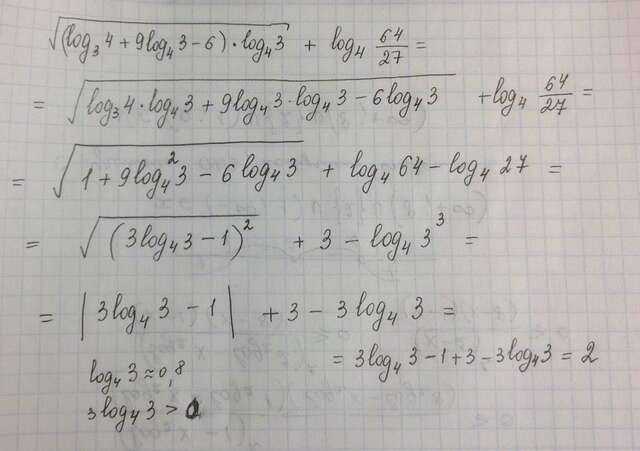 √((log₃4 + 9log₄3 − 6) · log₄3) + log₄ 64/27 =
= √(log₃4 · log₄3 + 9log₄3 · log₄3 − 6log₄3) + log₄ 64/27 =
= √(1 + 9log₄²3 − 6log₄3) + log₄64 − log₄27 =
= √((3log₄3 − 1)²) + 3 − log₄3³ =
= |3log₄3 − 1| + 3 − 3log₄3 =
= 3log₄3 − 1 + 3 − 3log₄3 = 2
log₄3 ≈ 0,8
3log₄3 >